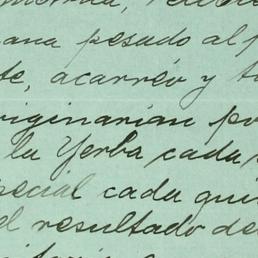 ana pesado al p
te, acarréo y t
originarian po
la Yerba cada
pecial cada qui
el resultado de